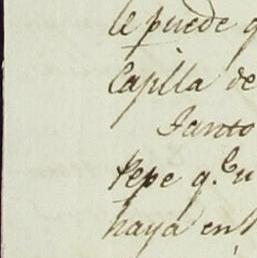 le puede q
Capilla de
Santo
Pepe q.e u
haya en